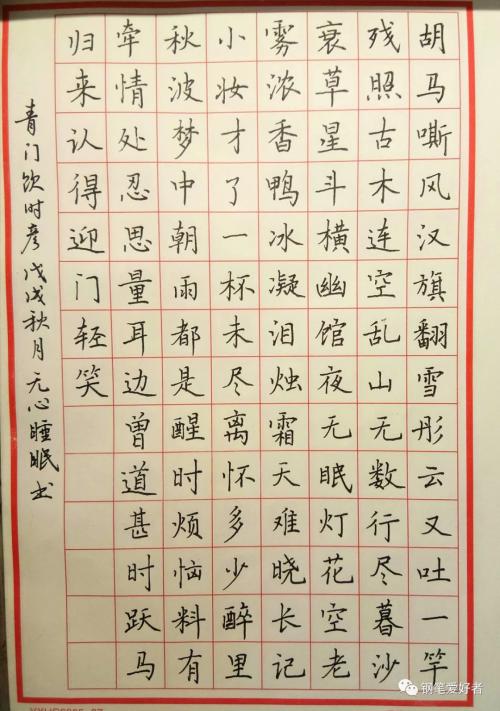 胡马嘶风汉旗翻雪彤云又吐一竿
残照古木连空乱山无数行尽暮沙
衰草星斗横幽馆夜无眠灯花空老
雾浓香鸭冰凝泪烛霜天难晓长记
小妆才了一杯未尽离怀多少醉里
秋波梦中朝雨都是醒时烦恼料有
牵情处忍思量耳边曾道甚时跃马
归来认得迎门轻笑
青门饮时彦戊戌秋月无心睡眠书
钢笔爱好者